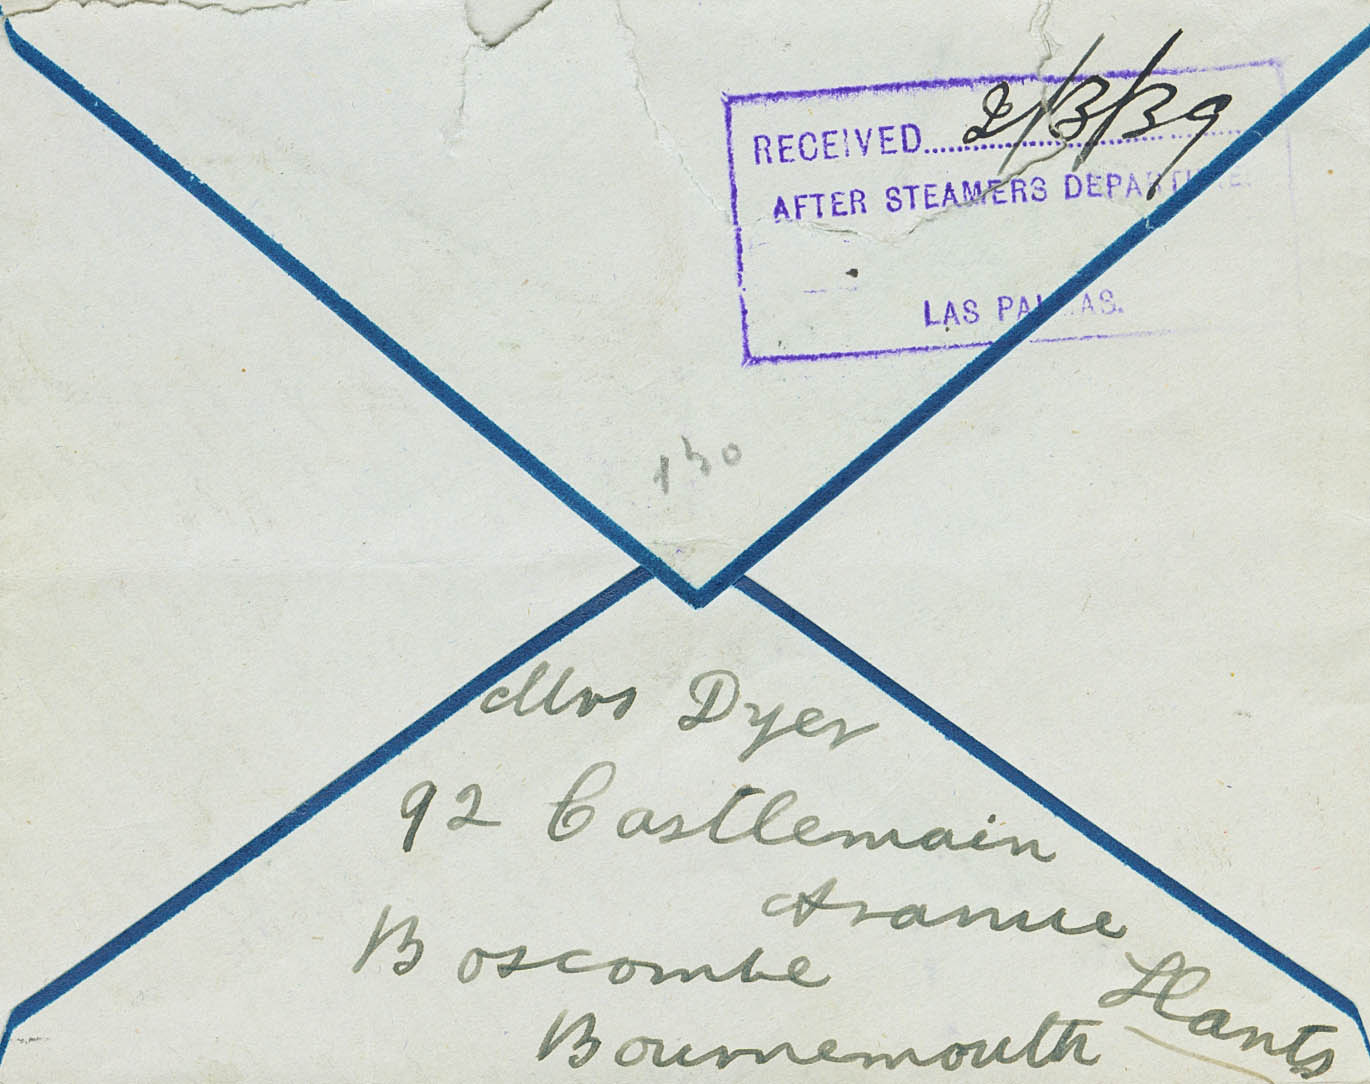 RECEIVED 2/3/39
AFTER STEAMERS DEPARTURE.
LAS PALMAS.
130
Mrs Dyer
92 Castlemain
Avanue
Boscombe
Bournemouth
Hants